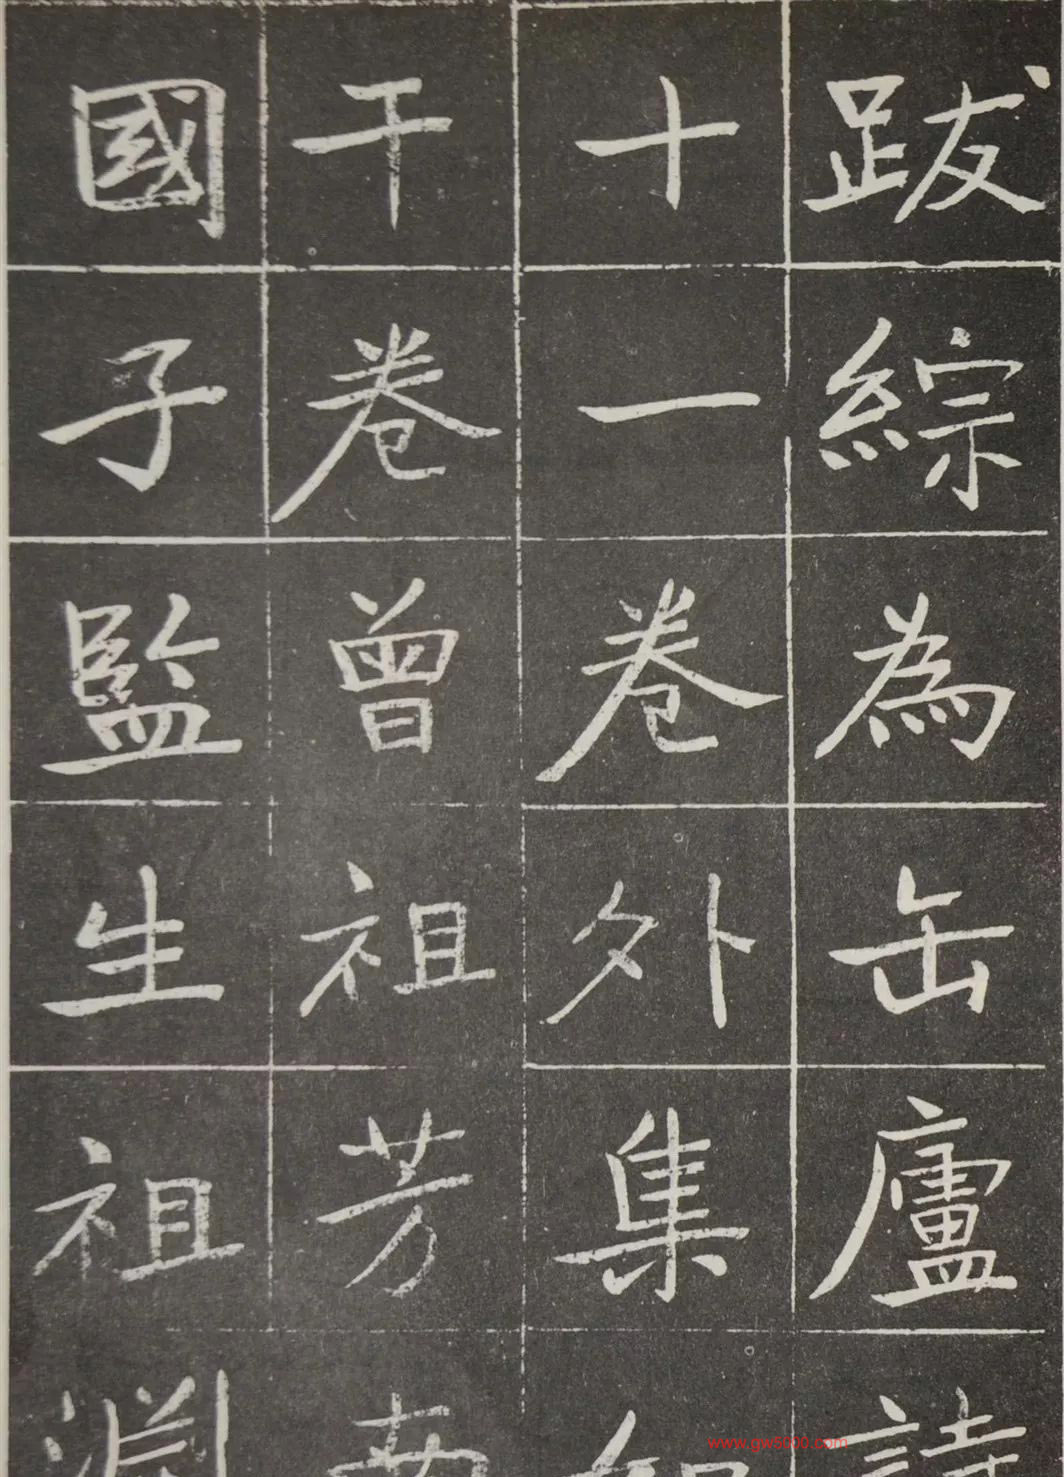 跋綜為缶廬詩
十一卷外集
干卷曾祖芳
國子監生祖淵
www.gw5000.com